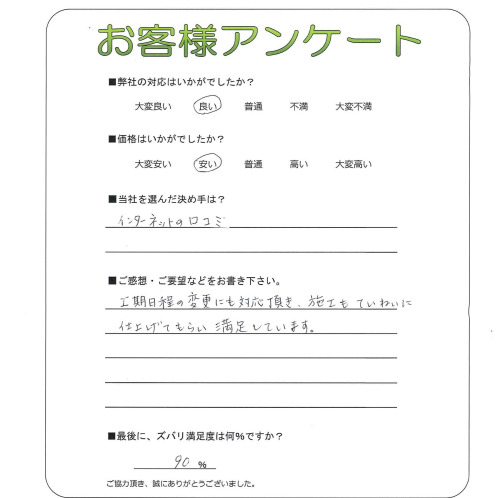 お客様アンケート
■弊社の対応はいかがでしたか?
大変良い 良い 普通 不満 大変不満
■価格はいかがでしたか?
大変安い 安い 普通 高い 大変高い
■当社を選んだ決め手は?
インターネットの口コミ
■ご感想・ご要望などをお書き下さい。
工期日程の変更にも対応頂き、施工もていねいに
仕上げてもらい満足しています。
■最後に、ズバリ満足度は何%ですか?
90 %
ご協力頂き、誠にありがとうございました。